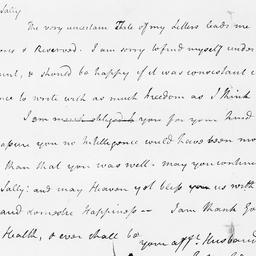 Sally
The very uncertain State of my Letters leads me
& Reserved. I am sorry to find myself under
& should be happy if it was consistent
to write with as much freedom as I think
I am much obliged to you for your kind
assure you no Intelligence would have been
than that you was well. may you continue
Sally: and may Heaven yet bless you us with
and Happiness — I am thank God
Health, & ever shall be
your afft. Husband